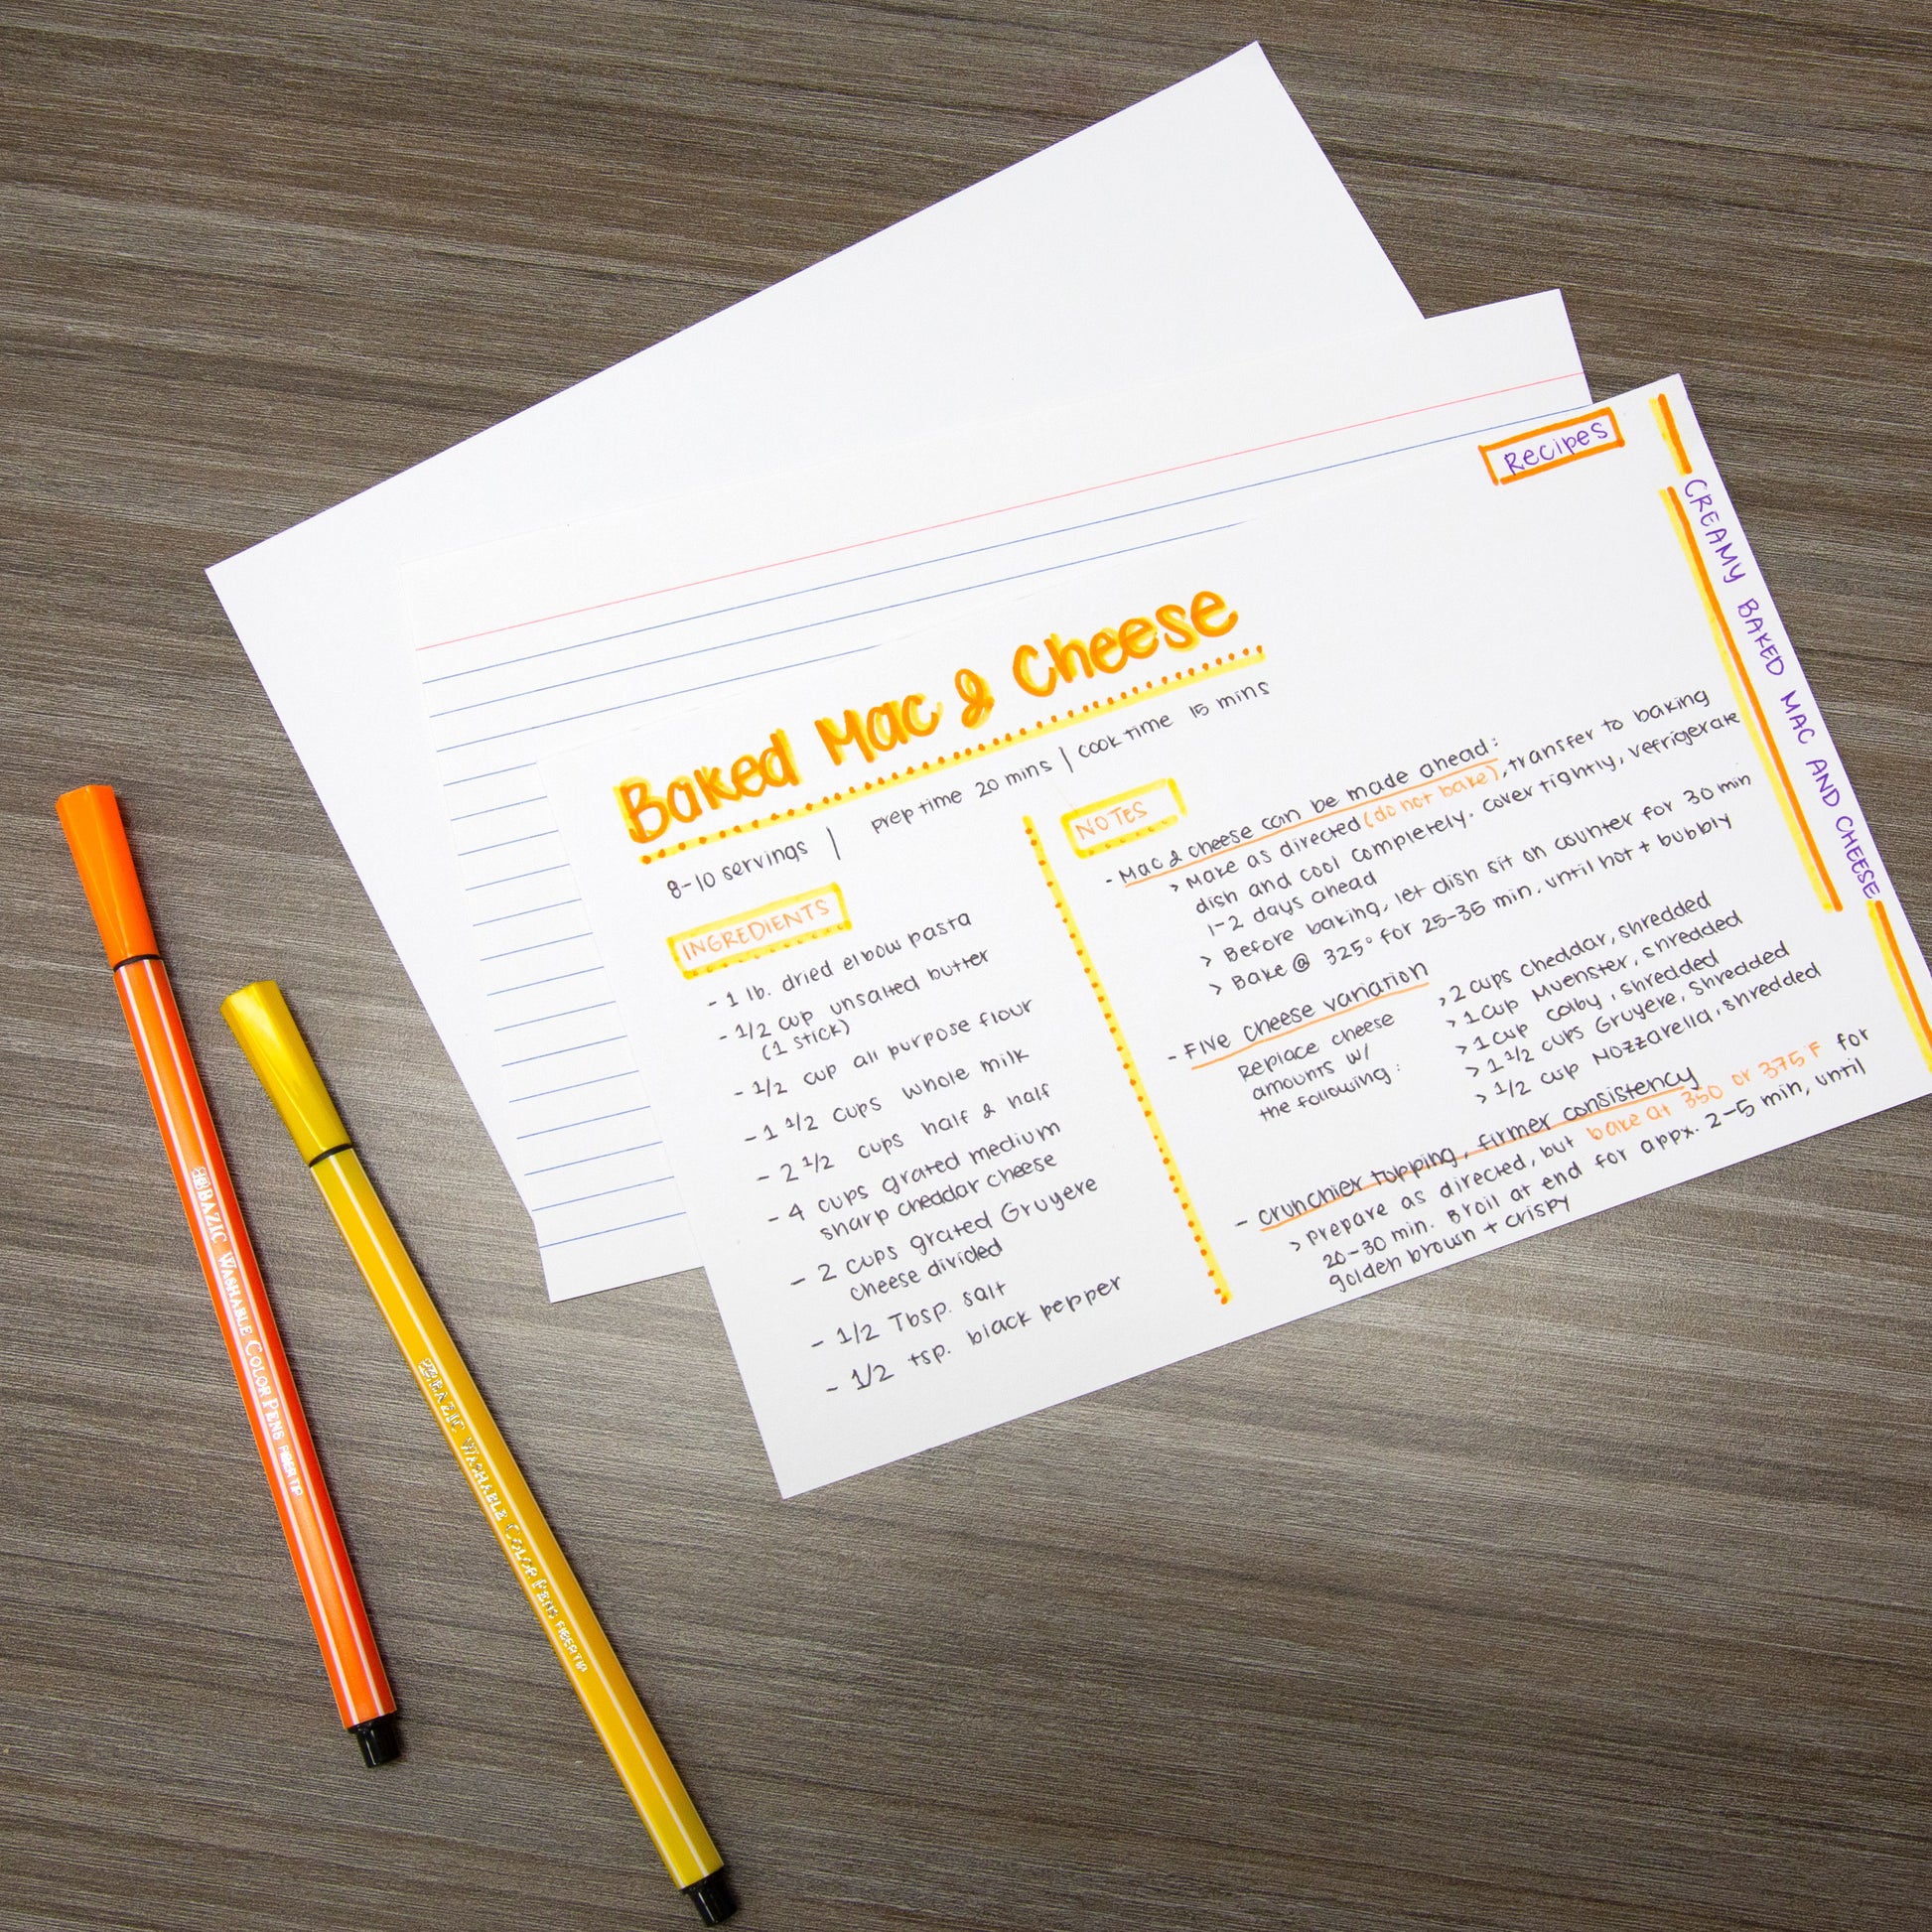 Recipes
CREAMY BAKED MAC AND CHEESE
Baked Mac & Cheese
8-10 servings | prep time 20 mins | cook time 15 mins
INGREDIENTS
- 1 lb. dried elbow pasta
- 1/2 cup unsalted butter
(1 stick)
- 1/2 cup all purpose flour
- 1 1/2 cups whole milk
- 2 1/2 cups half & half
- 4 cups grated medium
sharp cheddar cheese
- 2 cups grated Gruyere
cheese divided
- 1/2 Tbsp. salt
- 1/2 tsp. black pepper
NOTES
- Mac & cheese can be made ahead:
> Make as directed (do not bake), transfer to baking
dish and cool completely. cover tightly, refrigerate
1-2 days ahead
> Before baking, let dish sit on counter for 30 min
> Bake @ 325° for 25-35 min. until hot + bubbly
- Five cheese variation
Replace cheese
amounts w/
the following:
> 2 cups cheddar, shredded
> 1 cup Muenster, shredded
> 1 cup colby, shredded
> 1 1/2 cups Gruyere, shredded
> 1/2 cup Mozzarella, shredded
- crunchier topping, firmer consistency
> prepare as directed, but bake at 350 or 375°F for
20-30 min. Broil at end for appx. 2-5 min, until
golden brown + crispy
BAZIC WASHABLE COLOR PENS FIBER TIP
BAZIC WASHABLE COLOR PENS FIBER TIP